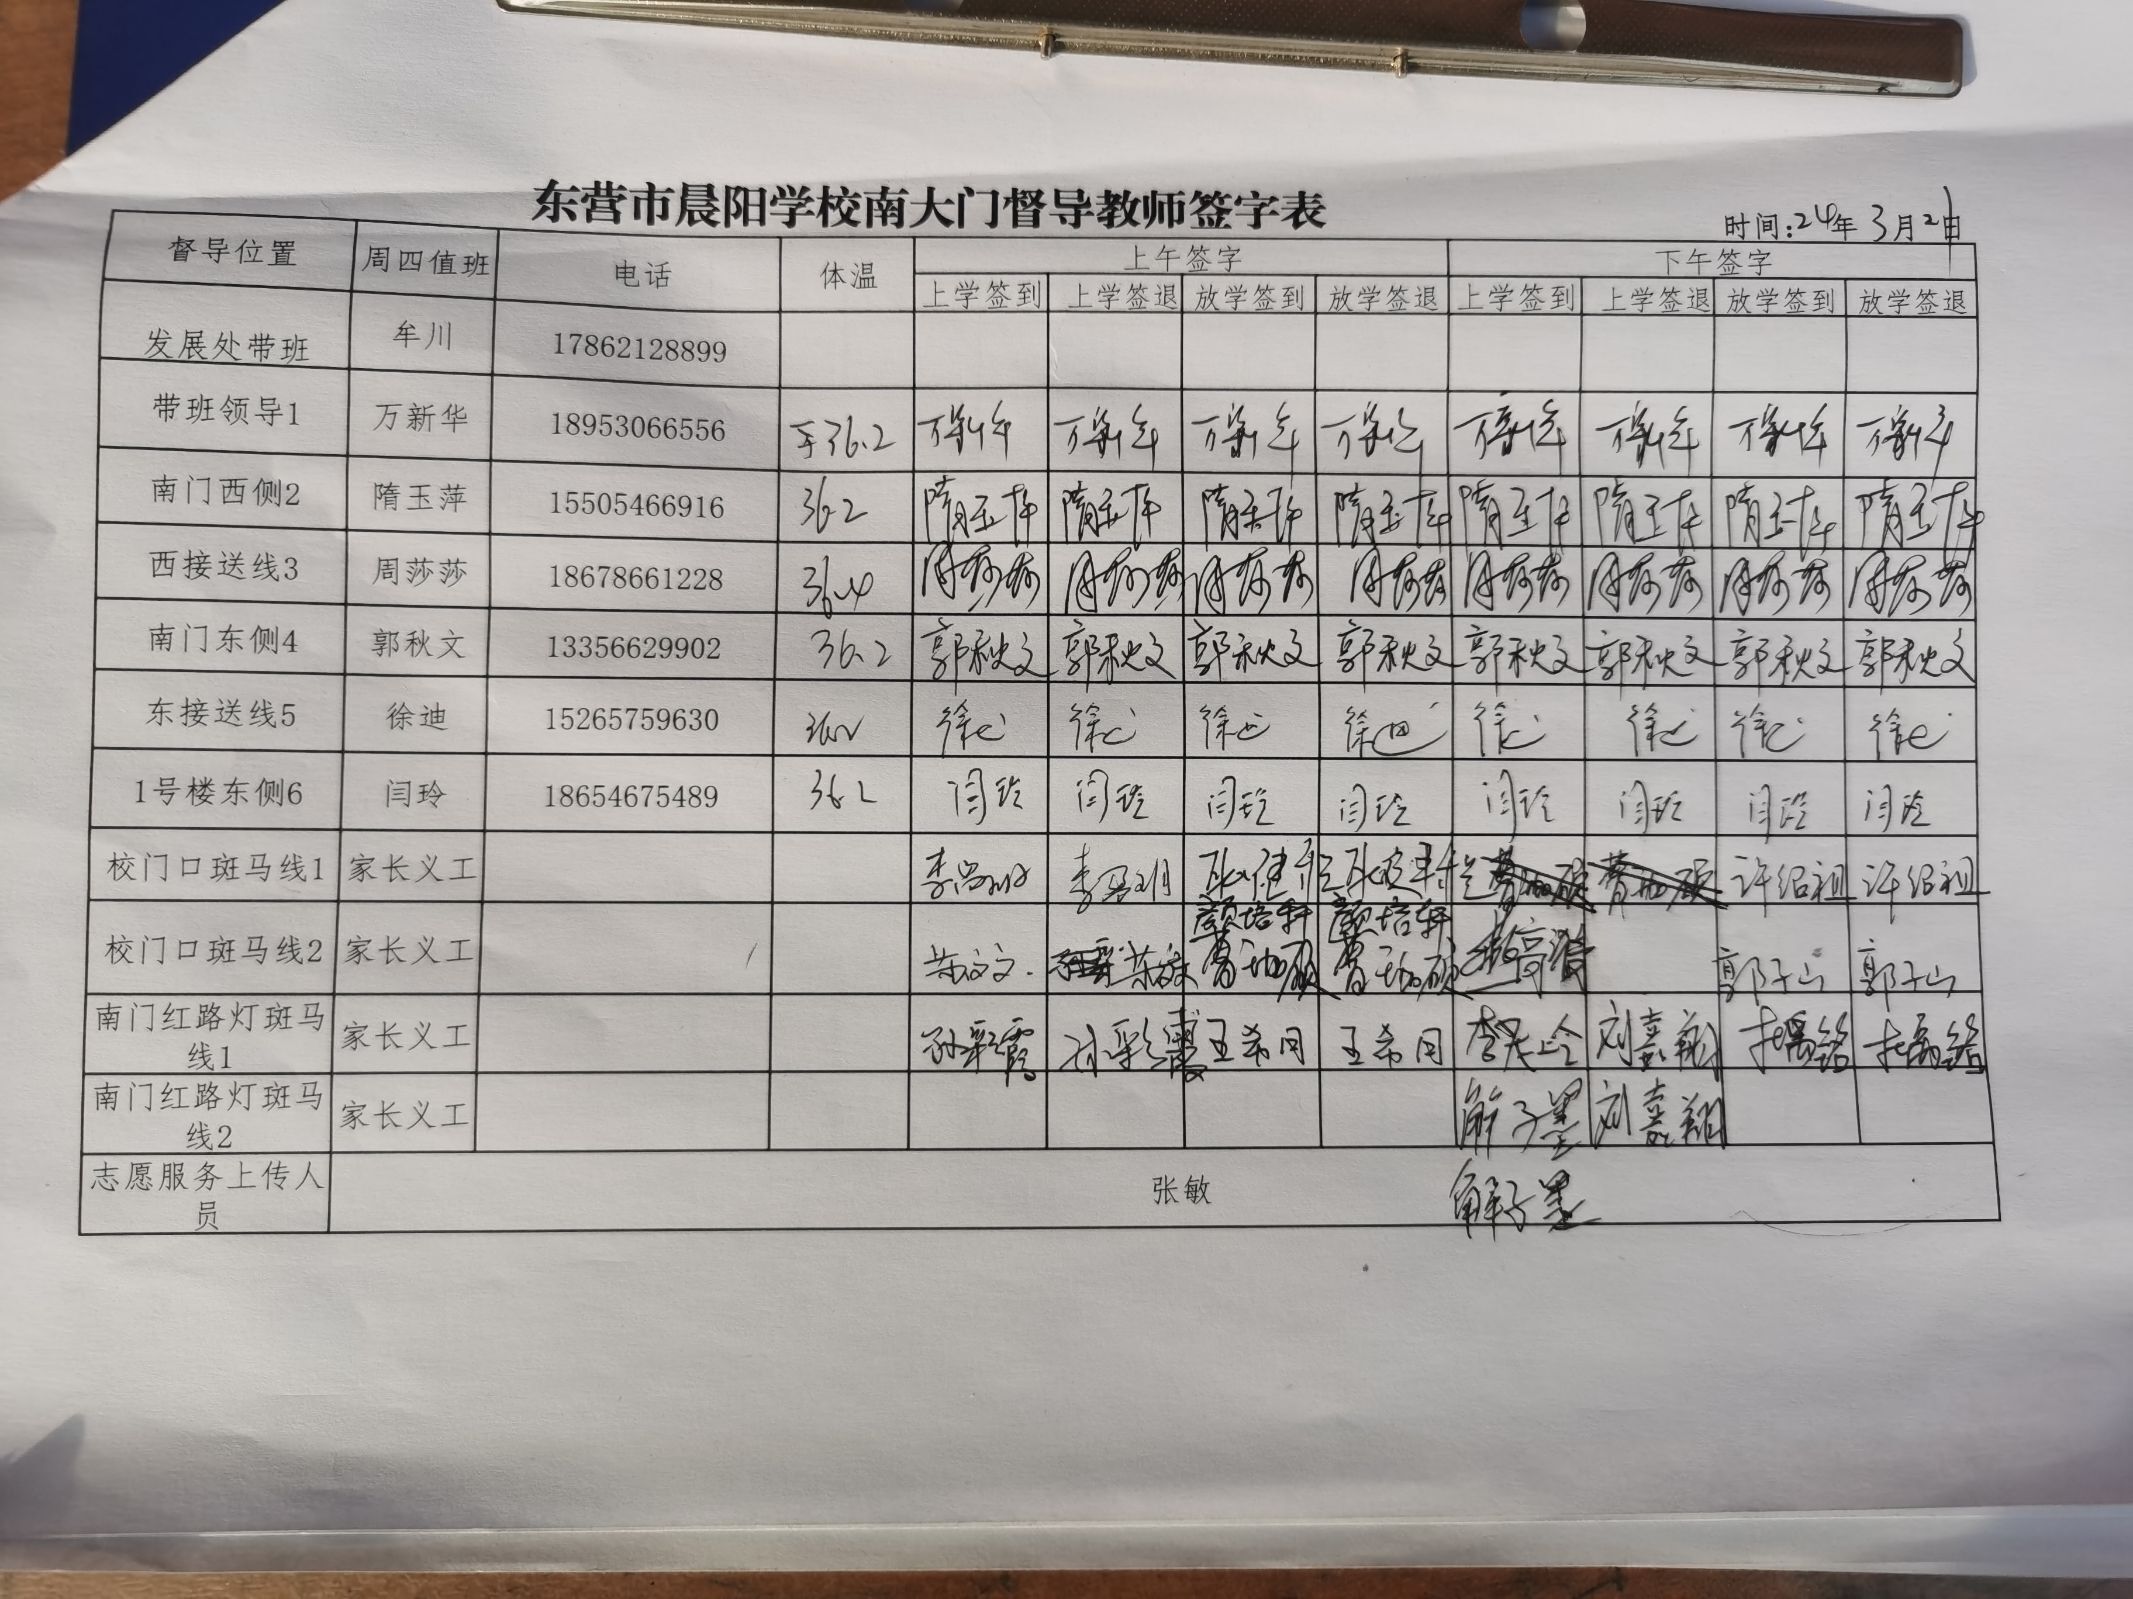 东营市晨阳学校南大门督导教师签字表
时间:24年 3月21日
督导位置 周四值班 电话 体温 上午签字 下午签字
上学签到 上学签退 放学签到 放学签退 上学签到 上学签退 放学签到 放学签退
发展处带班 牟川 17862128899
带班领导1 万新华 18953066556 36.2 万新华 万新华 万新华 万新华 万新华 万新华 万新华 万新华
南门西侧2 隋玉萍 15505466916 36.2 隋玉萍 隋玉萍 隋玉萍 隋玉萍 隋玉萍 隋玉萍 隋玉萍 隋玉萍
西接送线3 周莎莎 18678661228 36.4 周莎莎 周莎莎 周莎莎 周莎莎 周莎莎 周莎莎 周莎莎 周莎莎
南门东侧4 郭秋文 13356629902 36.2 郭秋文 郭秋文 郭秋文 郭秋文 郭秋文 郭秋文 郭秋文 郭秋文
东接送线5 徐迪 15265759630 36.2 徐迪 徐迪 徐迪 徐迪 徐迪 徐迪 徐迪 徐迪
1号楼东侧6 闫玲 18654675489 36.2 闫玲 闫玲 闫玲 闫玲 闫玲 闫玲 闫玲 闫玲
校门口斑马线1 家长义工 许绍祖 许绍祖
颜培轩 颜培轩
校门口斑马线2 家长义工 郭子山 郭子山
南门红路灯斑马 孙彩霞 孙彩霞 王希同 王希同 刘嘉翔
线1 家长义工
南门红路灯斑马 解子墨 刘嘉翔
线2 家长义工
志愿服务上传人 张敏 解子墨
员